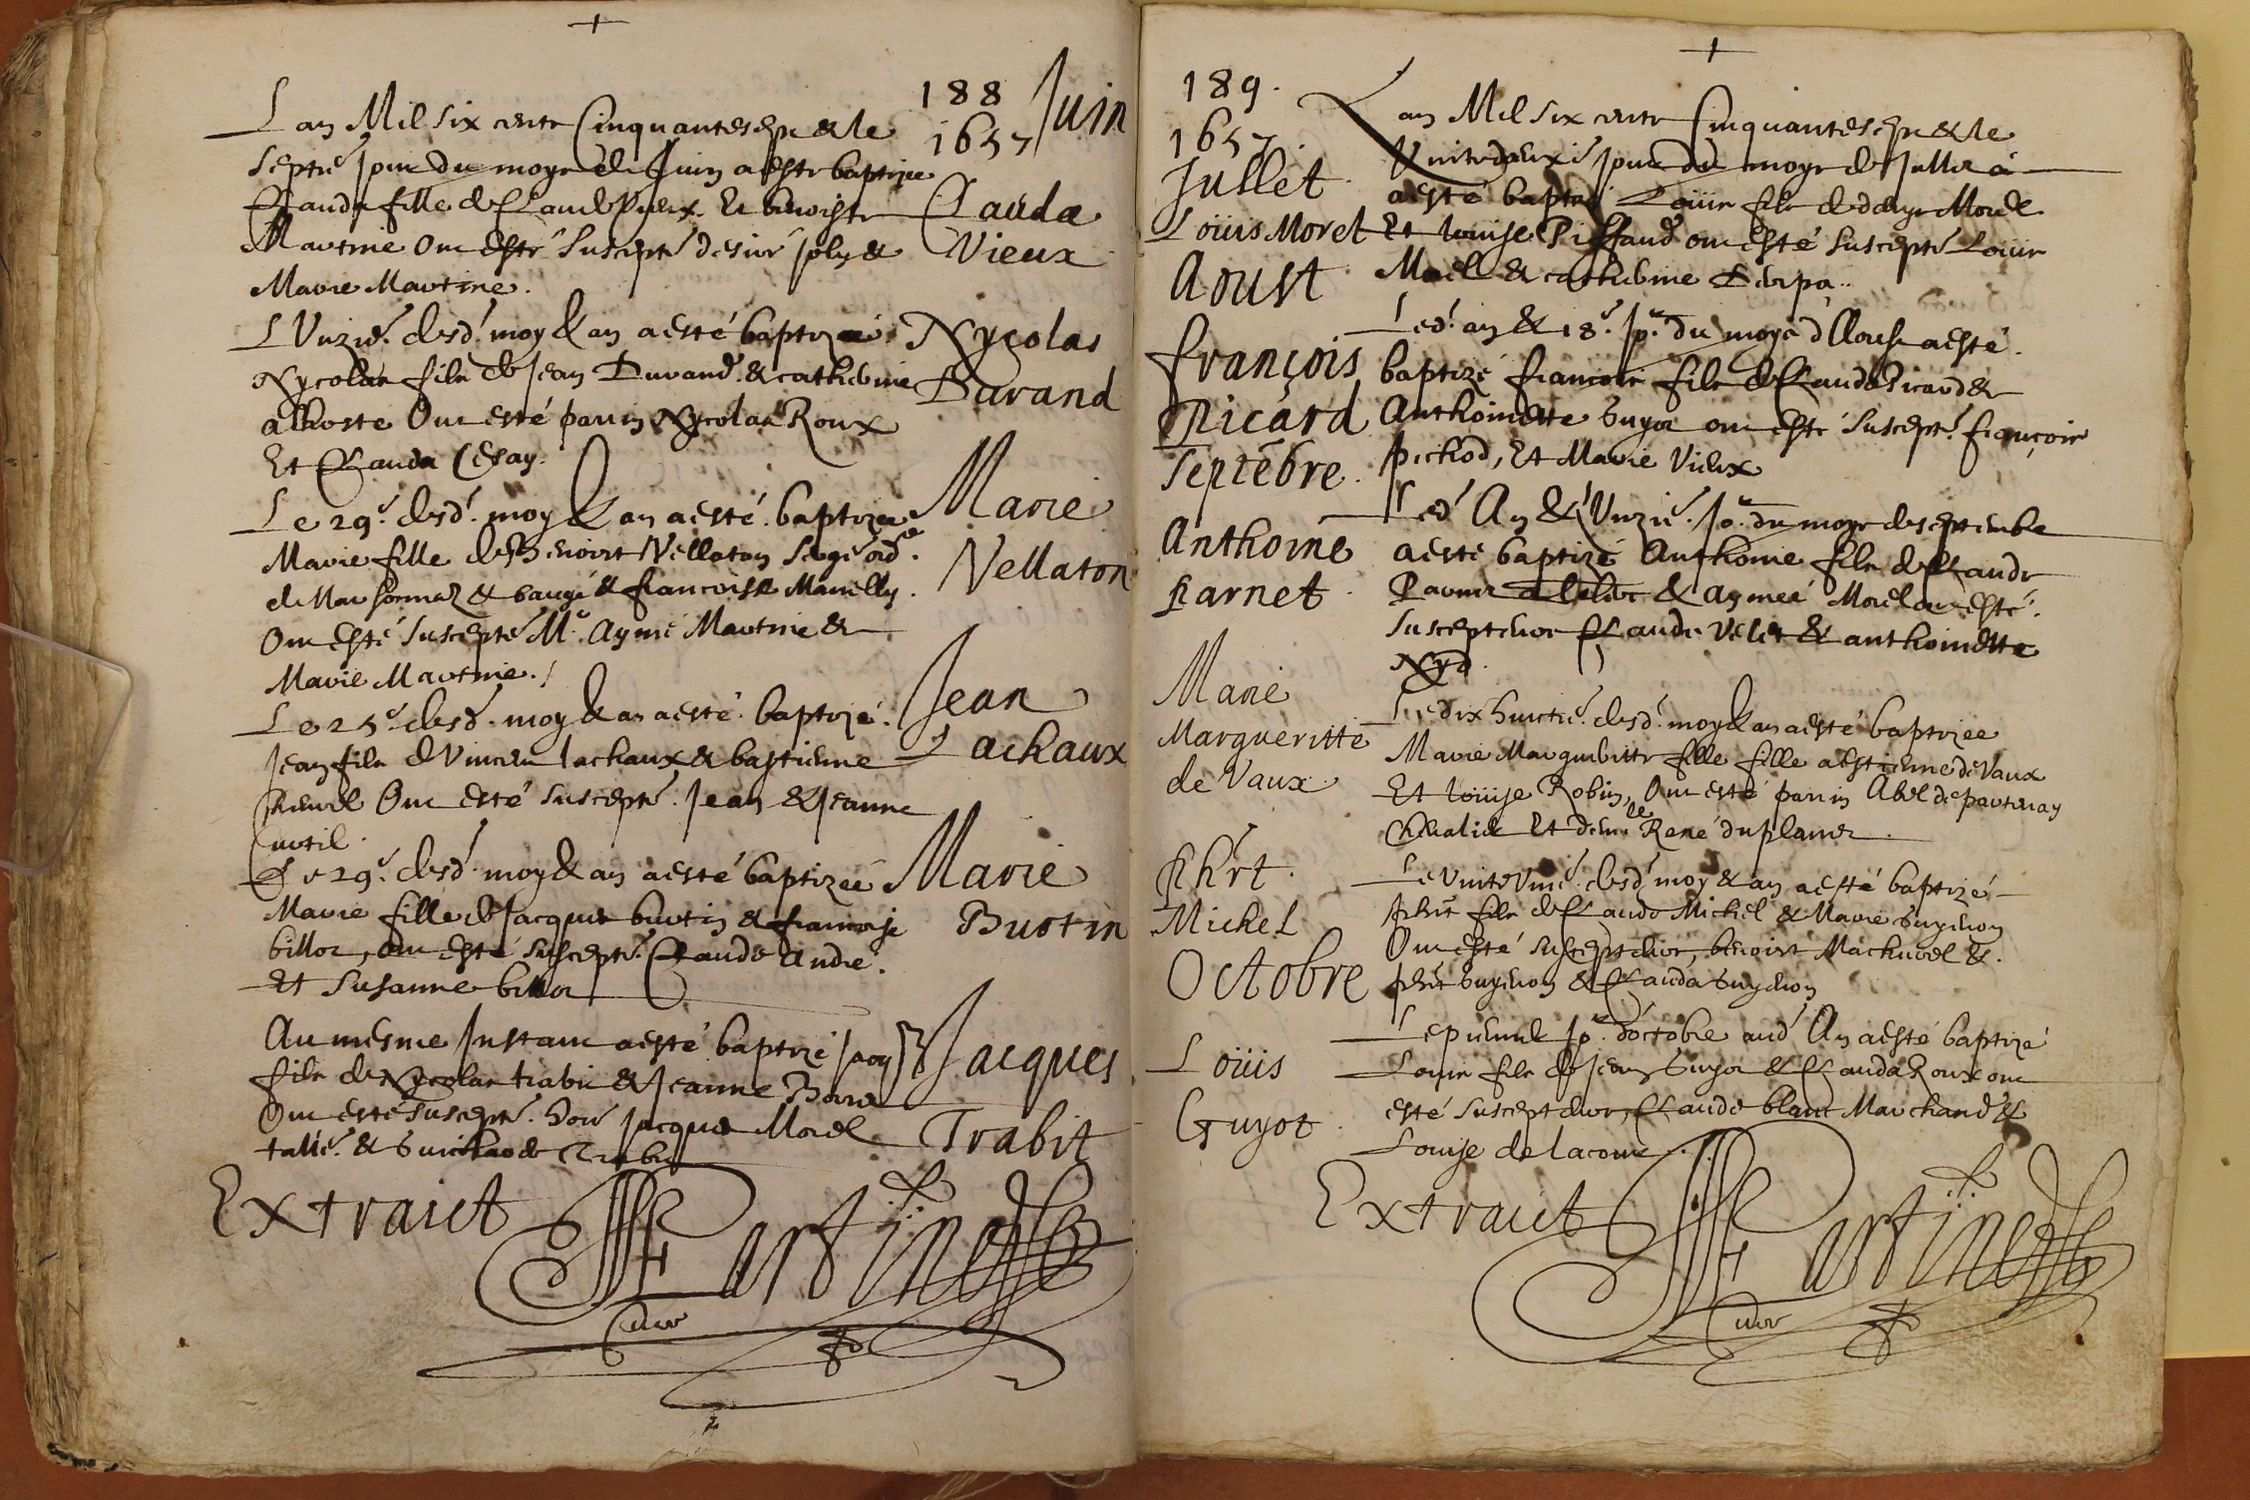 188
1657
Juin
Lan Mil six centz Cinquantesept & le
septie jour du moys de Juin a esté baptizee
Clauda fille de Claude Vieux. Et benoiste
Martine Ont esté suscepte. desire Joly &
Marie Martine.
Clauda
Vieux
L'Unzie. desd. moy & an a esté baptizé
Nycolas filz de Jean Durand. & catherine
alhoste Ont esté parrin Nycolas Roux
Et Clauda
Nycolas
Durand
Le 29e. desd. moy & an a esté. baptizee
Marie fille de Benoist Vellaton
de & baugé & francoise
Ont esté suscepte Me. Aymé Martine &
Marie Martine.
Marie
Vellaton
Le 25e. desd. moy & an a esté. baptizé.
Jean filz de Vincen lachaux & bastienne
Ont esté suscepte. Jean & Jeanne
Jean
Lachaux
Le 29e. desd. moy & an a esté baptizée
Marie fille de Jacques burtin & francoise
billor, ont esté suscepte. Claude André.
Et Susanne billor
Marie
Burtin
Au mesme Instant a esté baptizé Jacq
filz de Nycolas trabit & Jeanne
Ont esté suscepte. Jacques Morel
&
Jacques
Trabit
Extraict
Martine
Curé
189.
1657.
Jullet
Lan Mil six centz Cinquantesept & le
Vintedeuxie jour du moys de Jullet a
a esté baptizé Louis filz de Morel
Et louise Piffaud ont esté suscepte Louis
Morel & catherine
Loüis Moret
Aoust
Led. an & 18e. jo. du moys d'Aoust a esté.
baptizé francois filz de Claude Ricard &
Anthoinette Guyot ont esté suscept. francois
pichod, Et Marie Vieux
françois
Ricard
Septébre.
Led An & Unzie. jo. du moys de septembre
a esté baptizé Anthoine filz de Claude
& Aymeé Morel ont esté.
suscepteur Claude Velet & anthoinette
Nyd.
Anthoine
Parnet
Le dix huictie. desd. moy & an a esté baptizee
Marie Marguerite fille fille a estienne de Vaux
Et louise Robin, Ont esté parrin Abel de partenay
Et René duplanez
Marie
Margueritte
de Vaux
Le vinte unie. desd. moy & an a esté baptizé
phrt filz de Claude Michel & Marie Guychon
Ont esté suscepteur, benoist Machurel &.
phrt Guychon & Clauda Guychon
Phrt.
Michel
Octobre
Le premier jo. d'octobre aud An a esté baptizé
Louis filz de Jean Guyot & Clauda Roux ont
esté suscepteur, Claude blanc Marchand &
Louise de lacour
Loüis
Guyot
Extraict
Martine
Curé